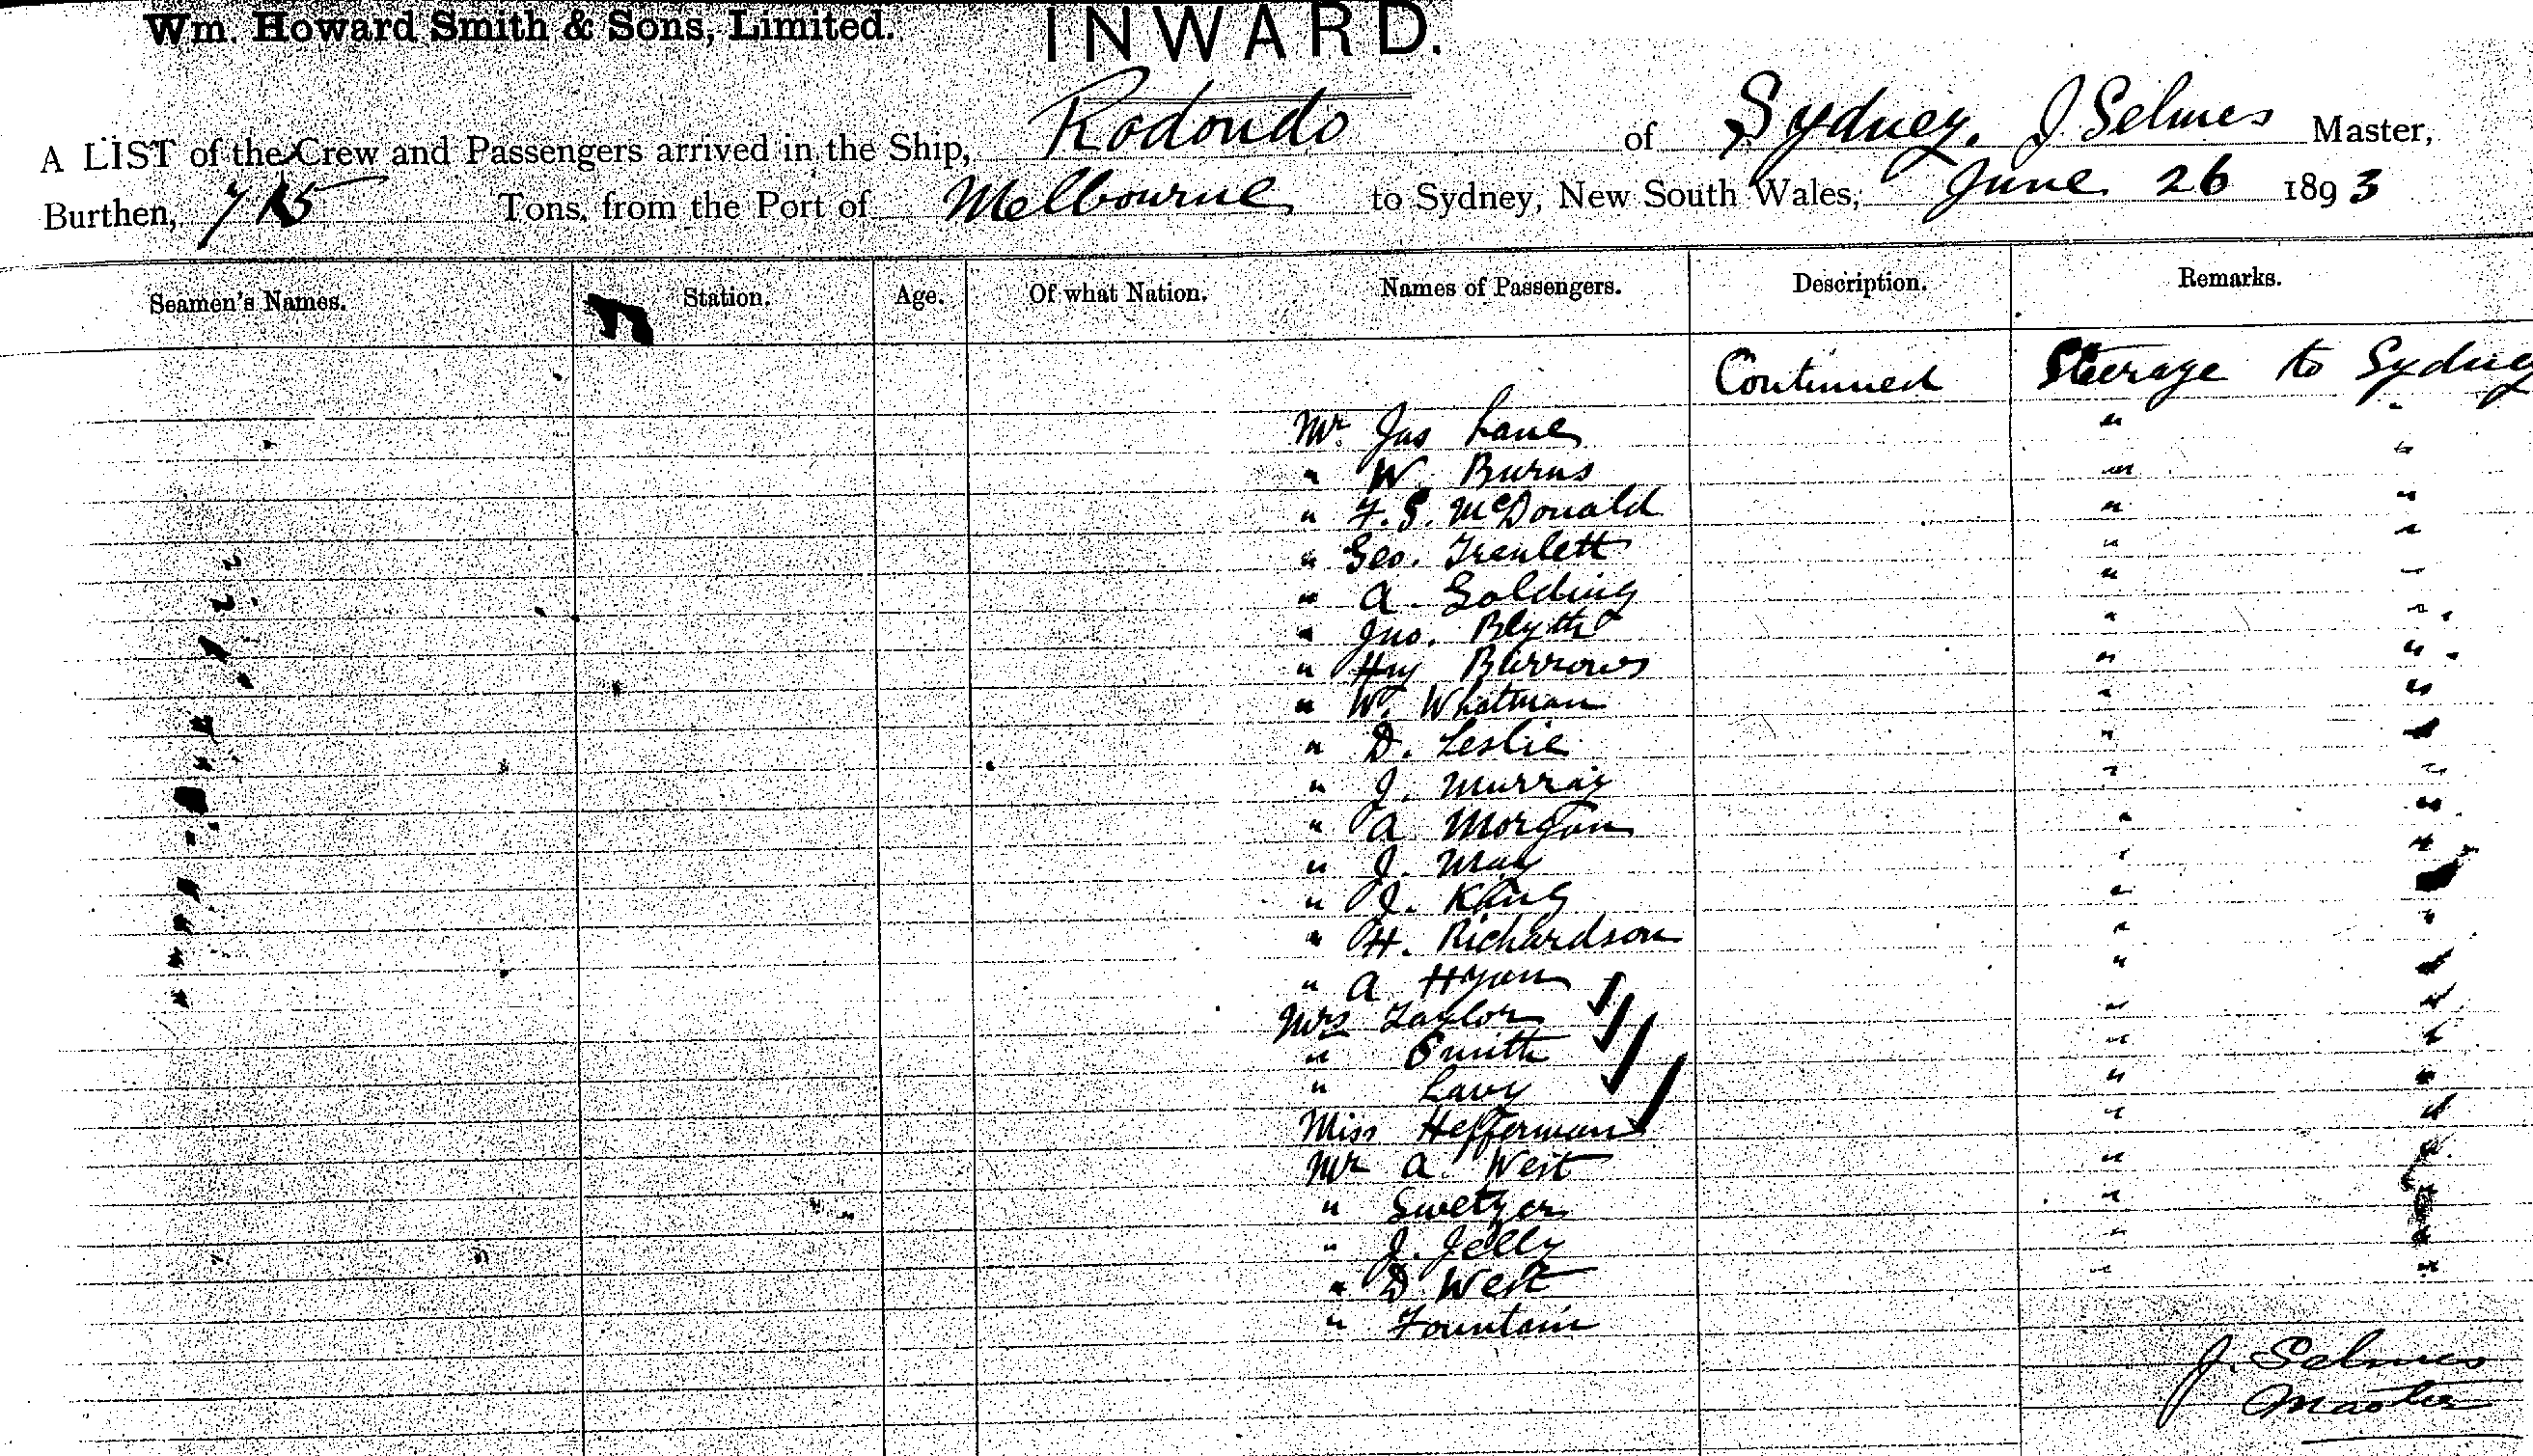 Wm. Howard Smith & Sons, Limited.
INWARD.
A LIST of the Crew and Passengers arrived in the Ship, Rodondo of Sydney, J Selmes Master,
Burthen, Tons, from the Port of Melbourne to Sydney, New South Wales, June 26 1893
Seamen's Names. Station. Age. Of what Nation. Names of Passengers. Description. Remarks.
Continued Steerage to Sydney
Mr. Jas Lane " "
" W. Burns " "
" F. G. McDonald " "
" Geo. Trenlett " "
" A. Golding " "
" Jno. Blyth " "
" Hry Burrows " "
" W. Whatman " "
" D. Leslie " "
" J. Murray " "
" A Morgan " "
" J. May " "
" J. King " "
" H. Richardson " "
" A Hyam " "
Mrs Taylor " "
" Smith " "
" Lavy " "
Miss Hefferman " "
Mr A West " "
" Swetzer " "
" J. Jelly " "
" D West " "
" Fountain
J. Selmes
Master